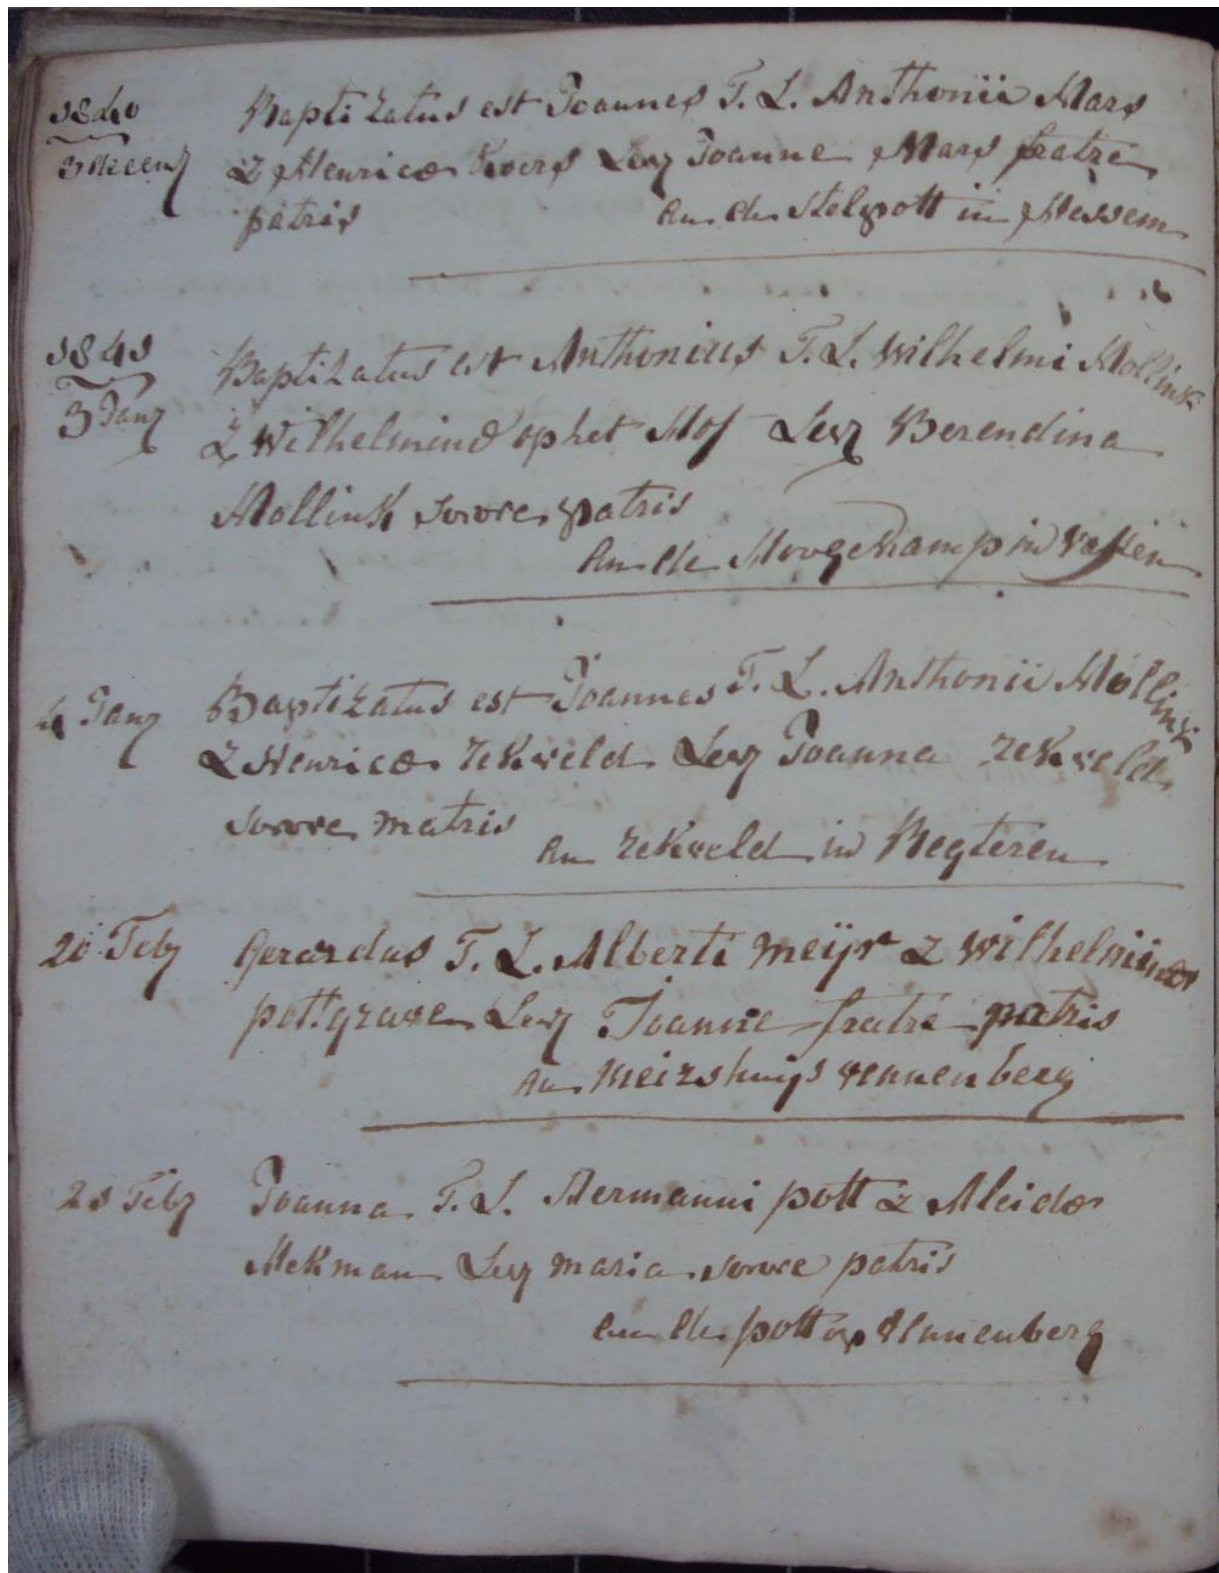 1840
3 Decemb Baptizatus est Joannes F. L. Anthonii Mars
& Henricæ Evers Lev Joanne Mars fratre
patris An de Stelpott in Hessem
1841
3 Jan Baptizatus est Anthonius F. L. Wilhelmi Mollink
& Wilhelminæ op het Hof Lev Berendina
Mollink sorore patris
An de Hoogekamp in
4 Jan Baptizatus est Joannes F. L. Anthonii Mollink
& Henricæ Rekveld Lev Joanna Rekveld
sorore matris An Rekveld in Regteren
20 Feb Gerardus F. L. Alberti Meijr & Wilhelminæ
pottgrave Lev Joanne fratre patris
An Meirshuijs vennenberg
21 Feb Joanna F. L. Hermanni pott & Aleidæ
Hekman Lev Maria sorore patris
An de pott op Vennenberg